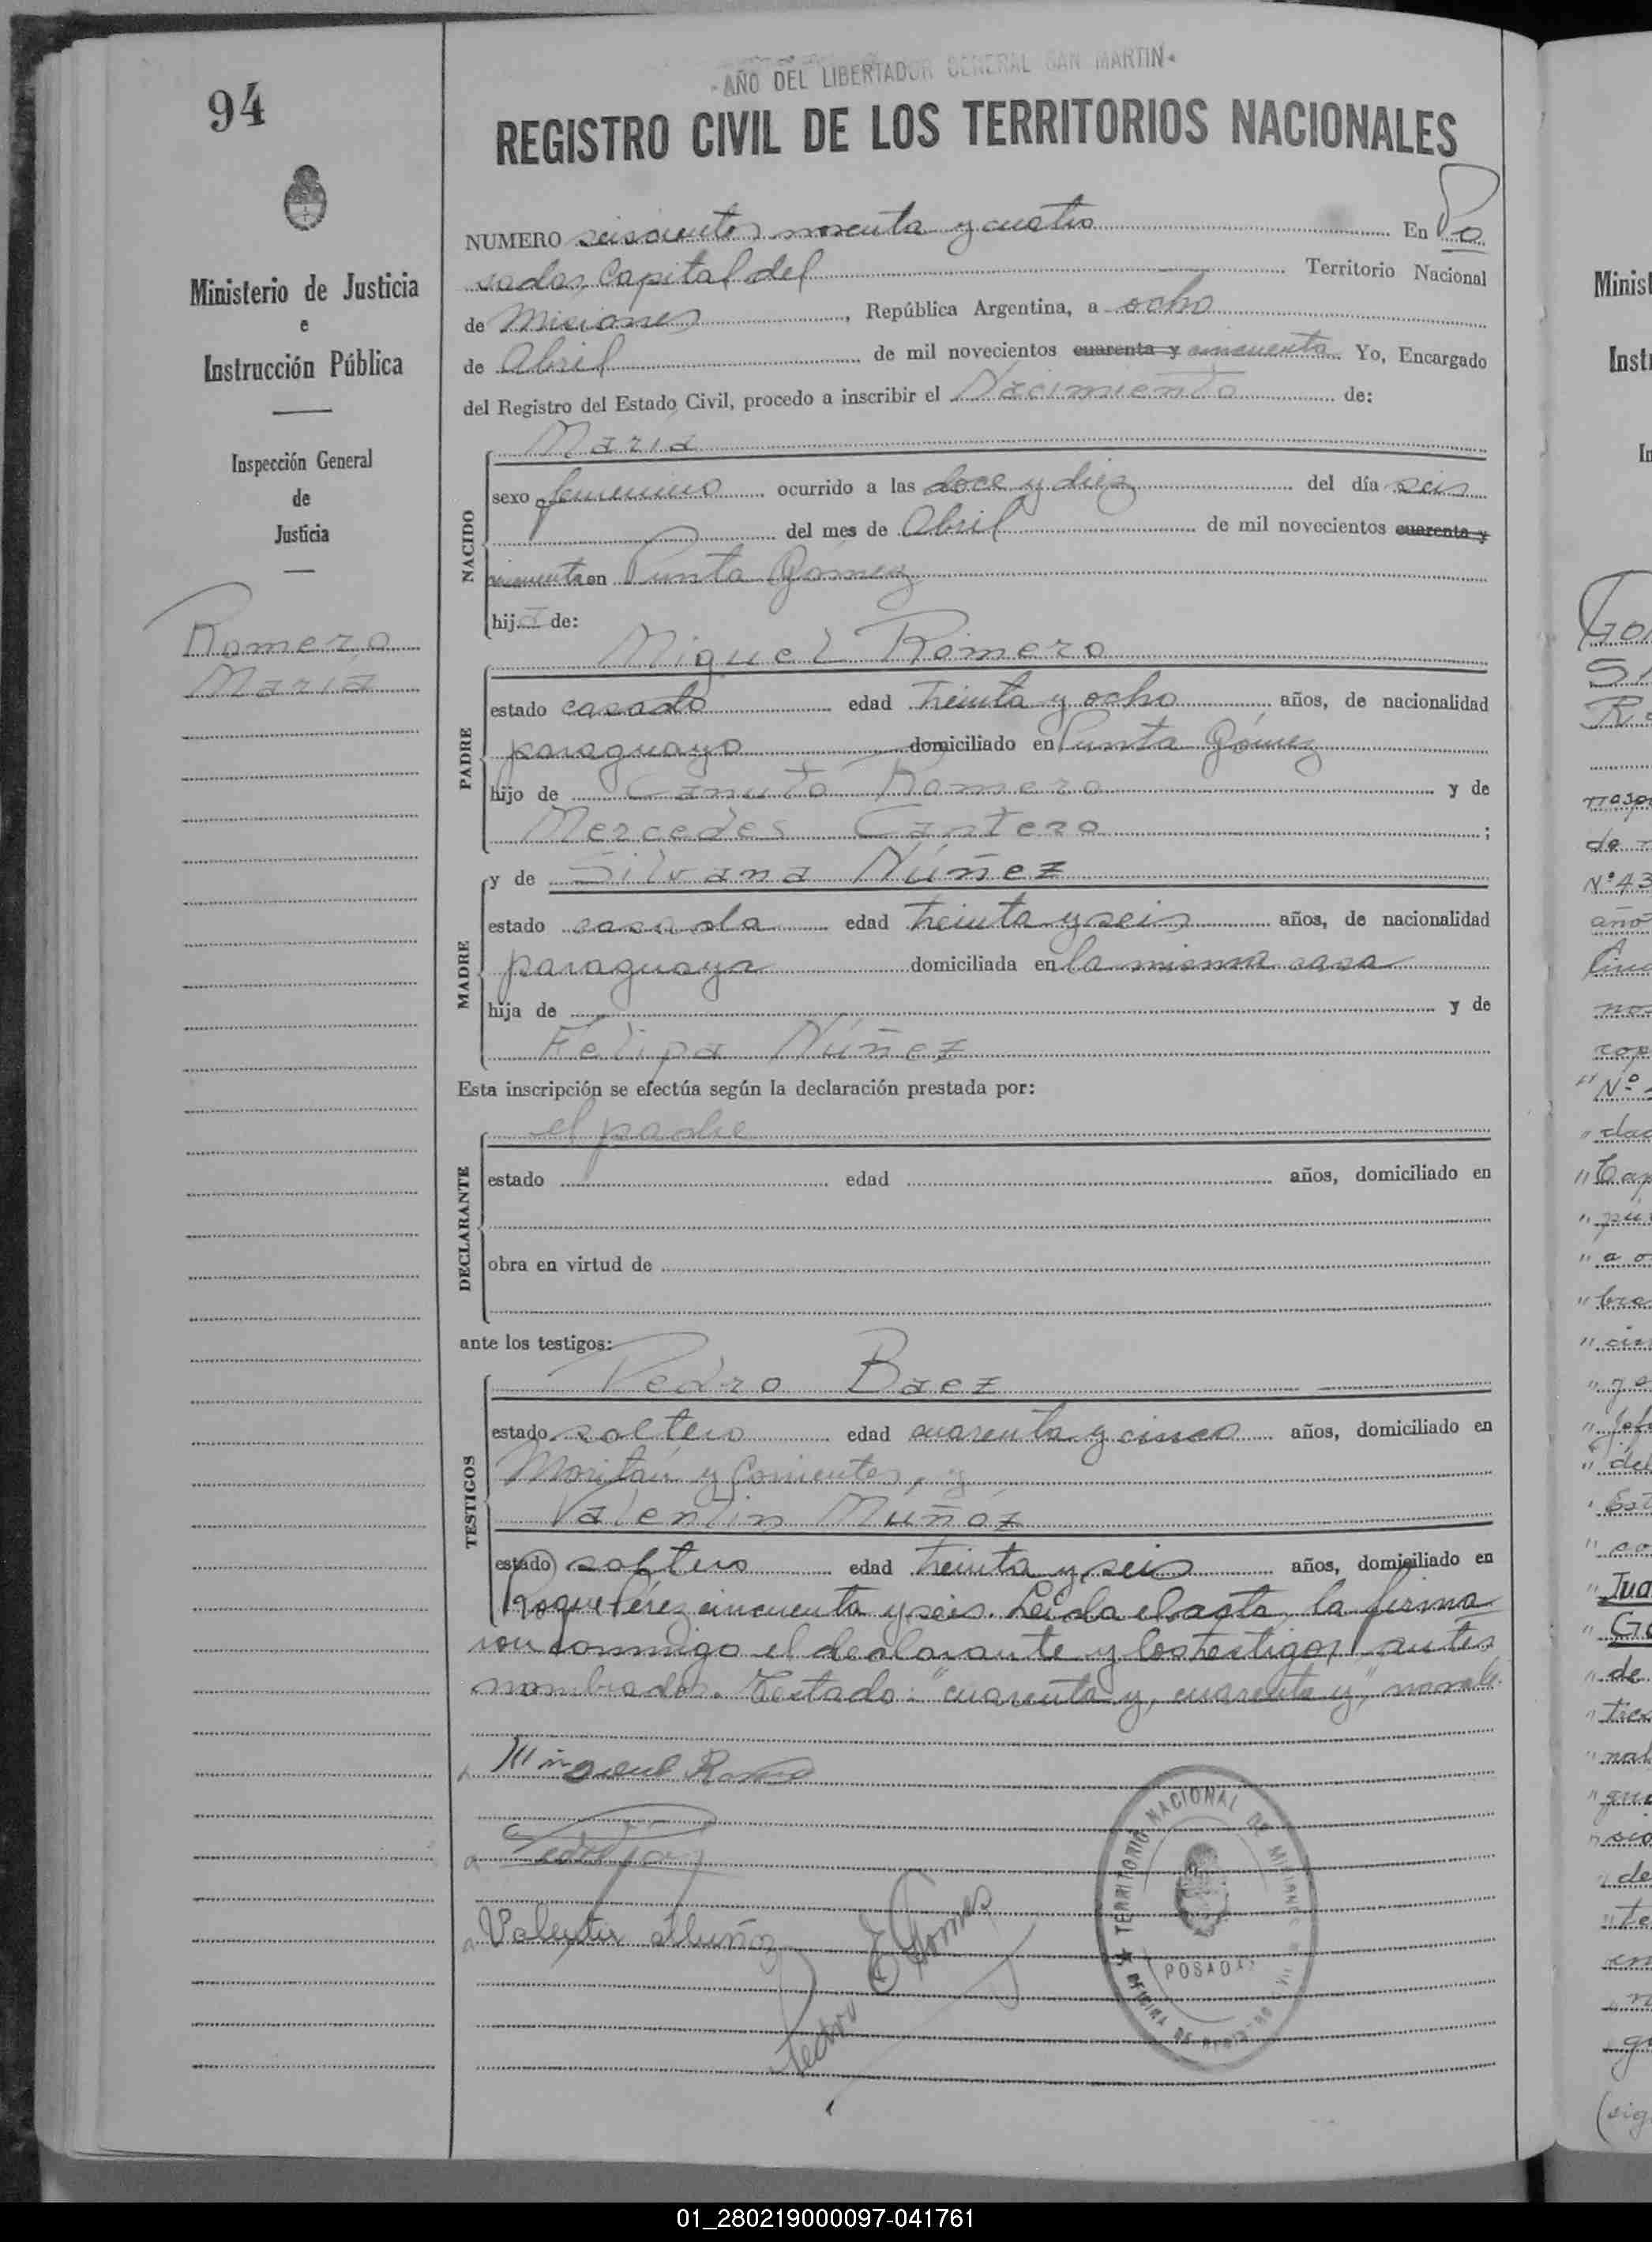 94
"AÑO DEL LIBERTADOR GENERAL SAN MARTIN"
REGISTRO CIVIL DE LOS TERRITORIOS NACIONALES
Ministerio de Justicia
e
Instrucción Pública
Inspección General
de
Justicia
Romero
María
NUMERO seiscientos noventa y cuatro En Po
sadas, Capital del Territorio Nacional
de Misiones, República Argentina, a ocho
de Abril de mil novecientos cuarenta y cincuenta Yo, Encargado
del Registro del Estado Civil, procedo a inscribir el Nacimiento de:
NACIDO
María
sexo femenino ocurrido a las doce y diez del día seis
del mes de Abril de mil novecientos cuarenta y
cincuenta en Punta Gómez
hija de:
PADRE
Miguel Romero
estado casado edad treinta y ocho años, de nacionalidad
paraguayo domiciliado en Punta Gómez
hijo de Canuto Romero y de
Mercedes Cantero;
MADRE
y de Silvana Núñez
estado casada edad treinta y seis años, de nacionalidad
paraguaya domiciliada en la misma casa
hija de y de
Felipa Núñez
Esta inscripción se efectúa según la declaración prestada por:
DECLARANTE
el padre
estado edad años, domiciliado en
obra en virtud de
ante los testigos:
TESTIGOS
Pedro Baez
estado soltero edad cuarenta y cinco años, domiciliado en
Moritán y Corrientes, y
Valentín Muñóz
estado soltero edad treinta y seis años, domiciliado en
Roque Pérez cincuenta y seis. Leída el acta, la firma
ron conmigo el declarante y los testigos antes
nombrados. Testado: "cuarenta y, cuarenta y", no vale.
Miguel Romero
Valentin Muñoz
Hector E Gomes
TERRITORIO NACIONAL DE MISIONES
POSADAS
OFICINA DE REGISTRO CIVIL
Minist
Inst
In
Gon
de
Nº 43
año
"Nº
"Cap
"a o
"de
(sig
01_280219000097-041761